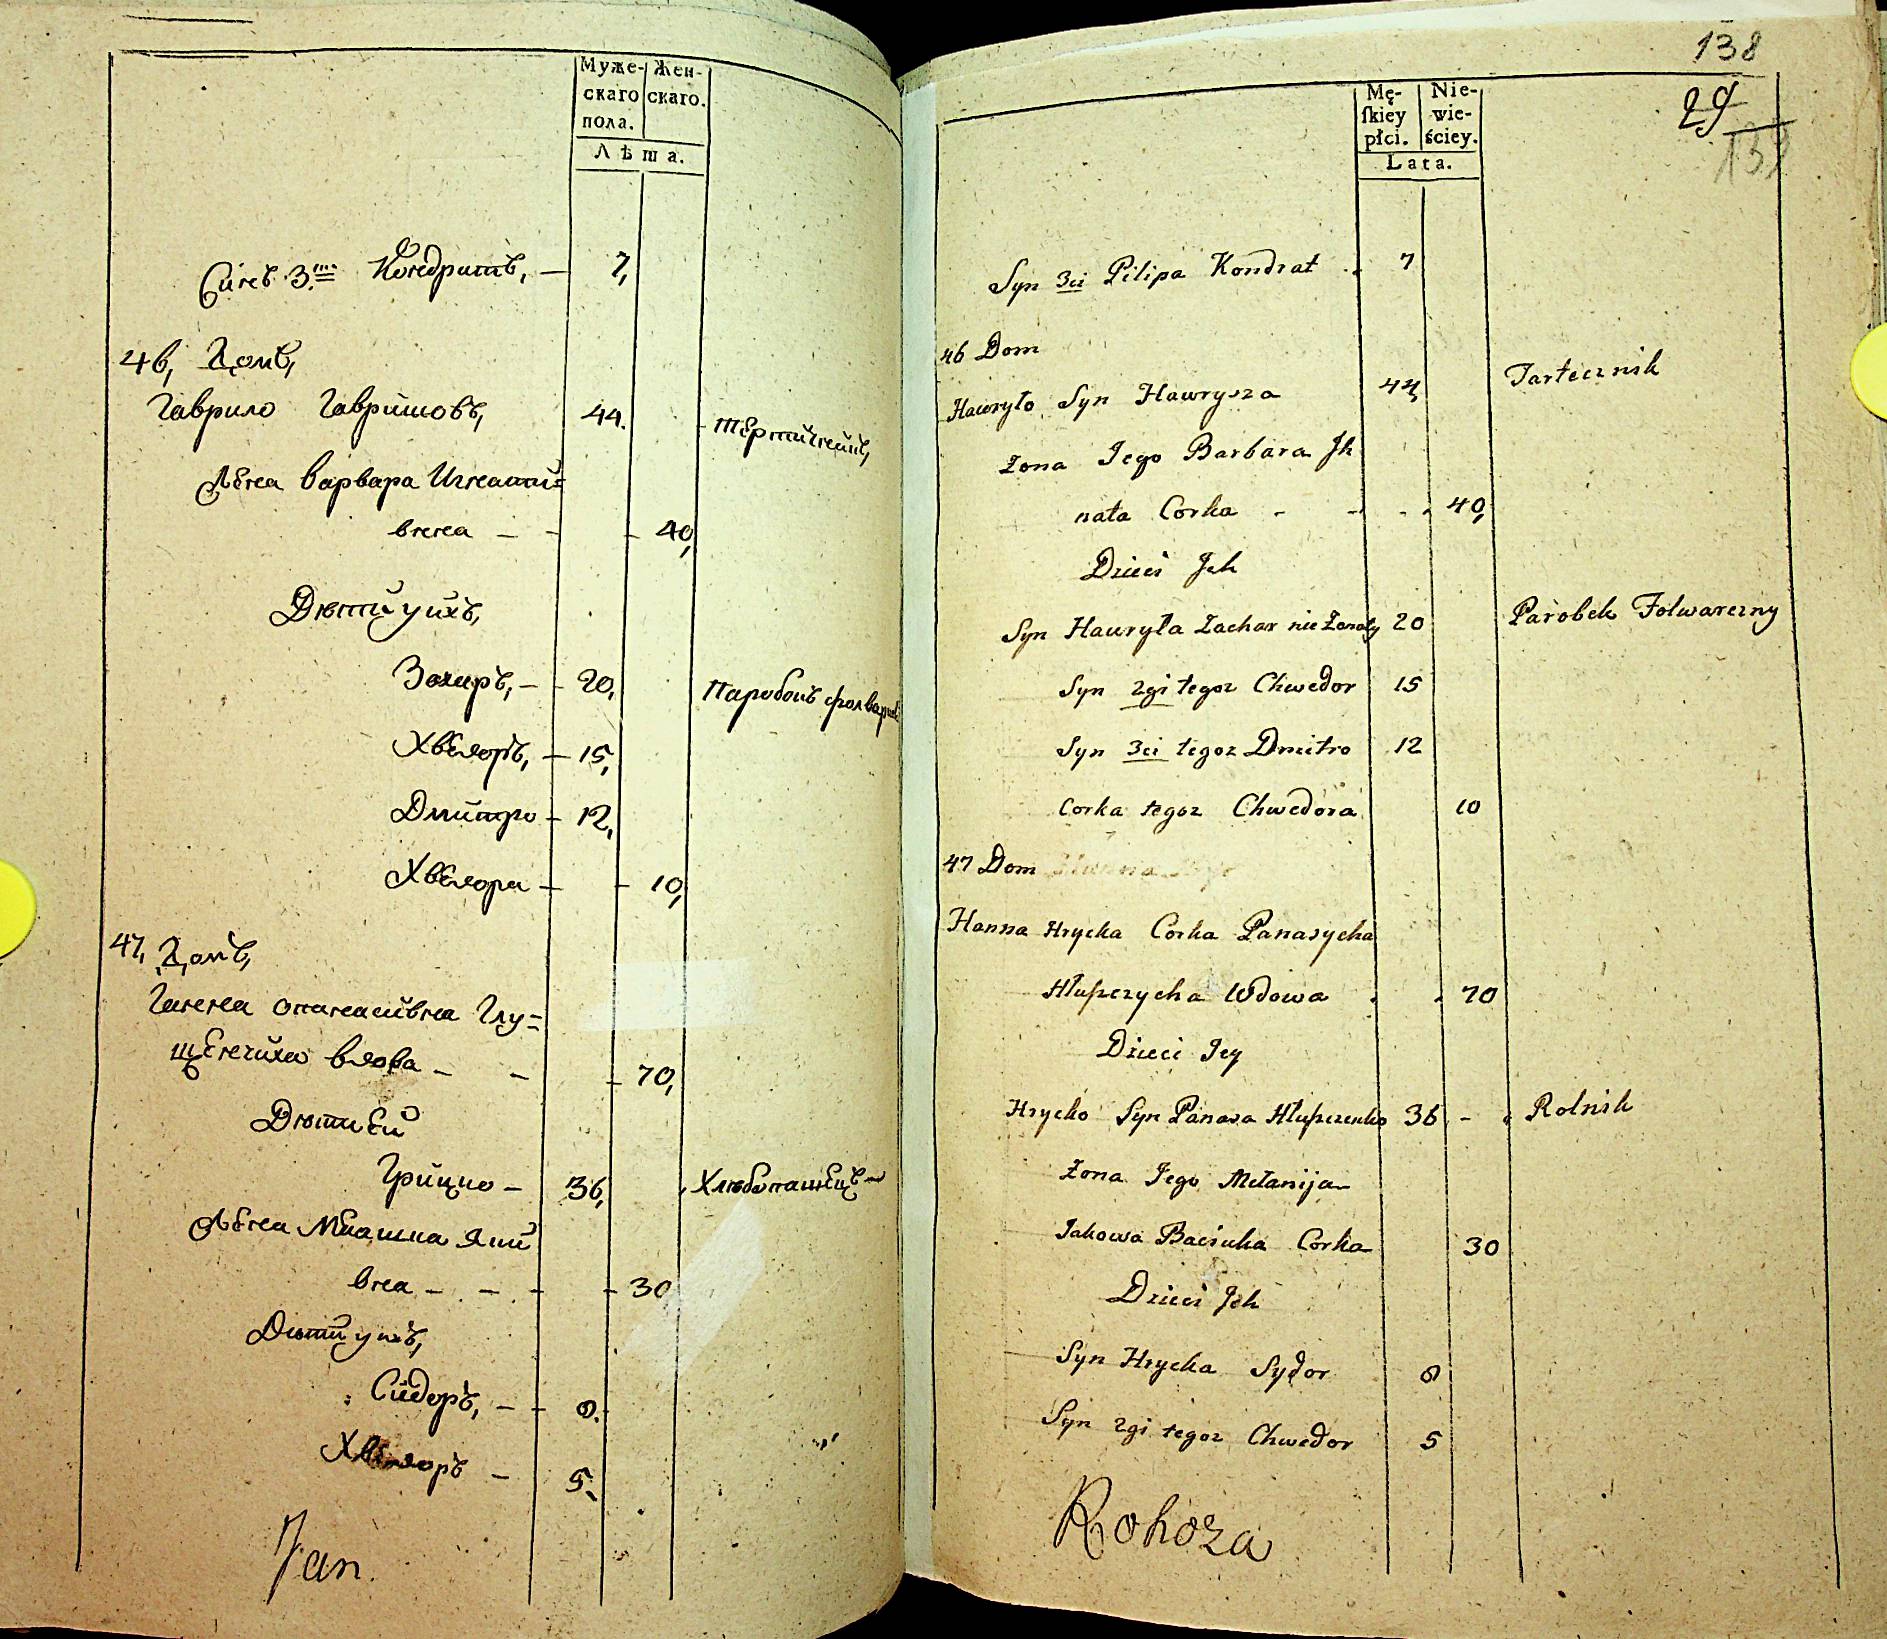 Муже-
скаго
пола.
Жен-
скаго.
Лѣта.
Синъ 3.й Кондратъ, — 7,
46, Домъ,
Гаврило Гавришовъ, 44. тертичний,
Жена Варвара Игнаті=
вна — — 40,
Дѣти ихъ,
Захаръ, — 20, Паробокъ фолварк
Хведоръ, — 15,
Дмитро — 12,
Хведора — 10,
47, Домъ,
Ганна Опанасивна Глу=
щенчиха вдова — — 70,
Дѣти Еи
Грицко — 36, Хлѣбопашецъ —
Жена Мелашка Яки
вна — — — 30
Дѣти ихъ,
Сидоръ, — 8.
Хведоръ — 5.
Jan
138
29
Mę-
ſkiey
płci.
Nie-
wie-
ściey.
Lata.
Syn 3ci Pilipa Kondrat 7
46 Dom
Hawryło Syn Hawrysza 44, Tartecznik
Zona Jego Barbara Jh
nata Corka - - 40,
Dzieci Jch
Syn Hawryła Zachar nie Zonaty 20 Parobek Folwarczny
Syn 2gi tegoz Chwedor 15
Syn 3ci tegoz Dmitro 12
Corka tegoz Chwedora 10
47 Dom
Hanna Hrycka Corka Panasycha
Hłuszczycha Wdowa 70
Dzieci Jey
Hrycko Syn Panasa Hłuszczenko 36 - Rolnik
Zona Jego Mełanija
Jakowa Baciuka Corka 30
Dzieci Jch
Syn Hrycka Sydor 8
Syn 2gi tegoz Chwedor 5
Rohoza